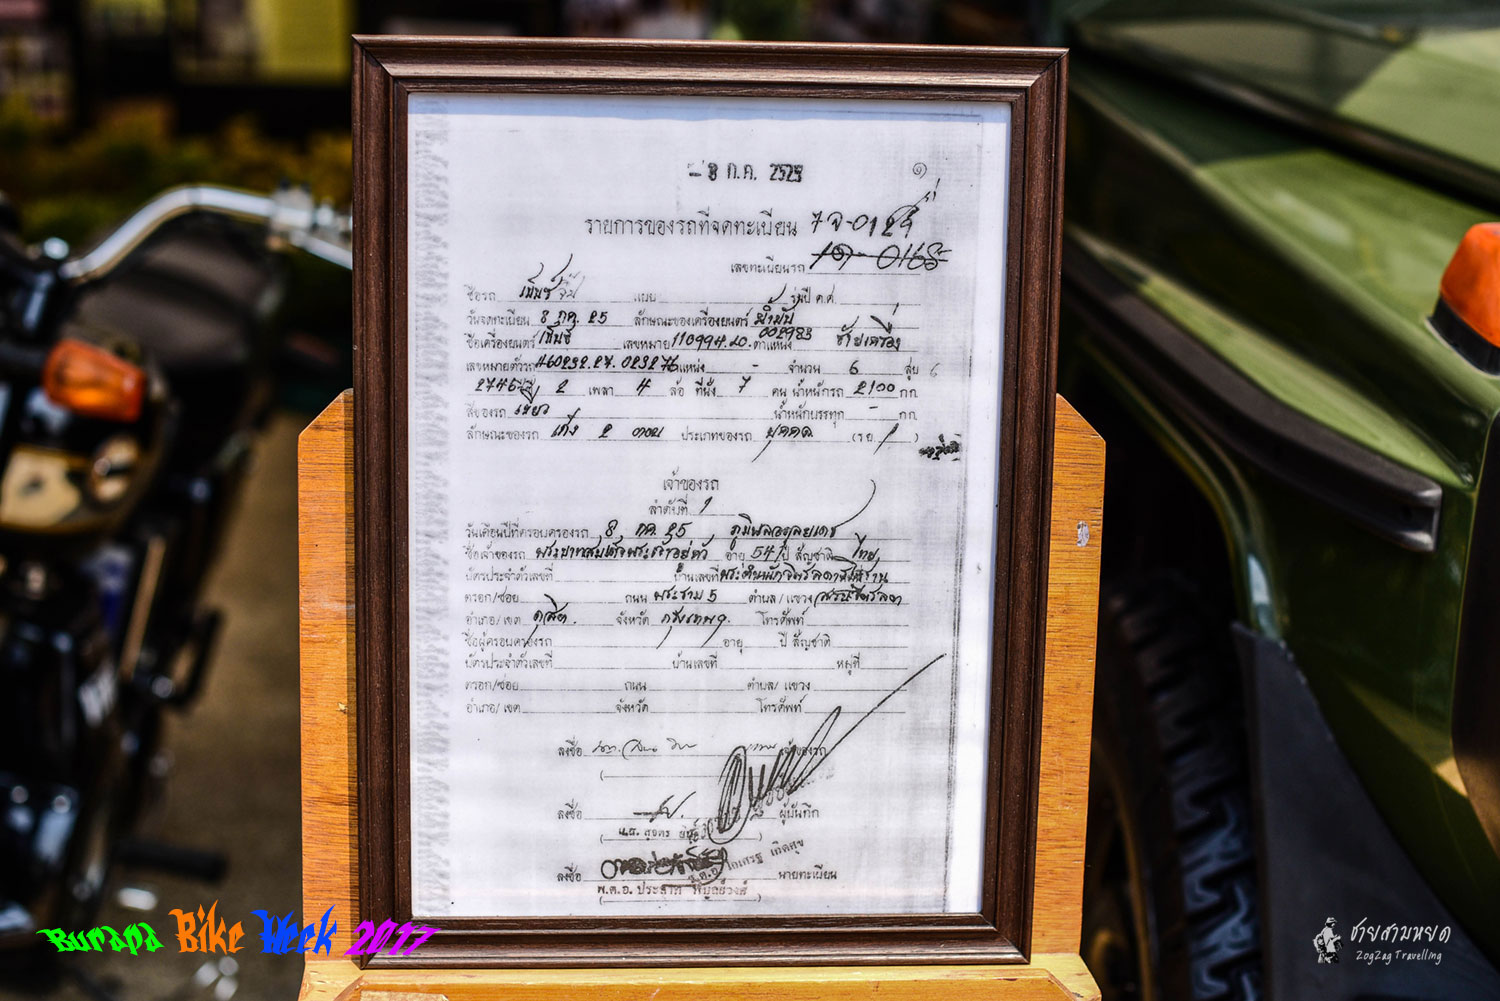 8 ก.ค. 2525 ๑
รายการของรถที่จดทะเบียน 7จ-01
เลขทะเบียนรถ
ชื่อรถ แบบ รุ่นปี ค.ศ.
วันจดทะเบียน 8 กค. 25 ลักษณะของเครื่องยนต์ น้ำมัน
ชื่อเครื่องยนต์ เบ็นซ์ เลขหมาย 110994.20. 002983 ตำแหน่ง ซ้ายเครื่อง
เลขหมายตัวรถ 460232.27.023276 แหน่ง - จำนวน 6 สูบ 6
2746 ซีซี 2 เพลา 4 ล้อ ที่นั่ง 7 คน น้ำหนักรถ 2100 กก.
สีของรถ เขียว น้ำหนักบรรทุก - กก.
ลักษณะของรถ เก๋ง 2 ตอน ประเภทของรถ บุคคล (รย 1 )
เจ้าของรถ
ลำดับที่ 1
วันเดือนปีที่ครอบครองรถ 8 กค. 25 ภูมิพลอดุลยเดช
ชื่อเจ้าของรถ พระบาทสมเด็จพระเจ้าอยู่หัว อายุ 54 ปี สัญชาติ ไทย
บัตรประจำตัวเลขที่ บ้านเลขที่ พระตำหนักจิตรลดารโหฐาน
ตรอก/ซอย ถนน พระราม 5 ตำบล/แขวง สวนจิตรลดา
อำเภอ/เขต ดุสิต. จังหวัด กรุงเทพฯ โทรศัพท์
ชื่อผู้ครอบครองรถ อายุ ปี สัญชาติ
บัตรประจำตัวเลขที่ บ้านเลขที่ หมู่ที่
ตรอก/ซอย ถนน ตำบล/แขวง
อำเภอ/เขต จังหวัด โทรศัพท์
ลงชื่อ เจ้าของรถ
ลงชื่อ ผู้บันทึก
ลงชื่อ นายทะเบียน
พ.ต.อ.
Burapa Bike Week 2017
ชายสามหยด
ZogZag Travelling